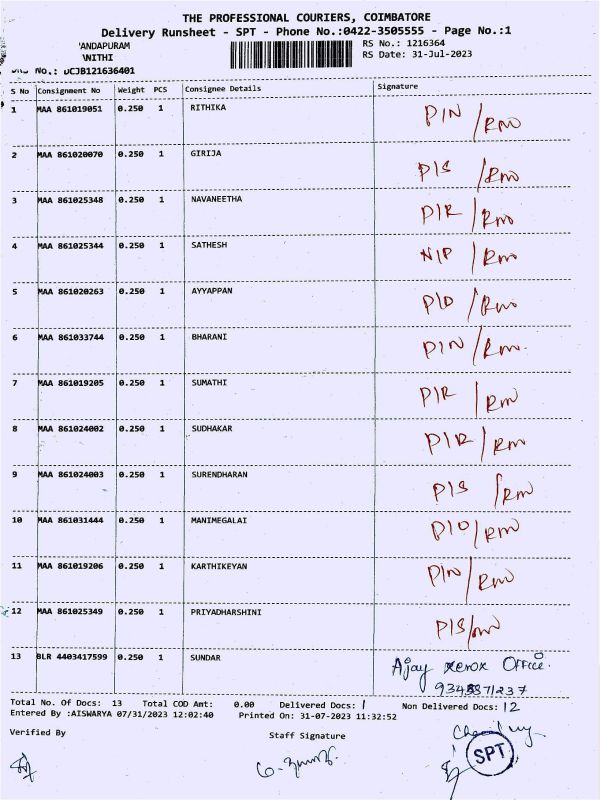 THE PROFESSIONAL COURIERS, COIMBATORE
Delivery Runsheet - SPT - Phone No.:0422-3505555 - Page No.:1
'ANDAPURAM
RS No.: 1216364
NITHI
RS Date: 31-Jul-2023
No.: DCJB121636401
S No Consignment No Weight PCS Consignee Details Signature
1 MAA 861019051 0.250 1 RITHIKA P/N / RNO
2 MAA 861020070 0.250 1 GIRIJA P/S / RNO
3 MAA 861025348 0.250 1 NAVANEETHA P/R / RNO
4 MAA 861025344 0.250 1 SATHESH N/P / RNO
5 MAA 861020263 0.250 1 AYYAPPAN P/D / RNO
6 MAA 861033744 0.250 1 BHARANI P/N / RNO
7 MAA 861019205 0.250 1 SUMATHI P/R / RNO
8 MAA 861024002 0.250 1 SUDHAKAR P/R / RNO
9 MAA 861024003 0.250 1 SURENDHARAN P/S / RNO
10 MAA 861031444 0.250 1 MANIMEGALAI P/D / RNO
11 MAA 861019206 0.250 1 KARTHIKEYAN P/N / RNO
12 MAA 861025349 0.250 1 PRIYADHARSHINI P/S
13 BLR 4403417599 0.250 1 SUNDAR Ajay xerox Office.
Total No. Of Docs: 13 Total COD Amt: 0.00 Delivered Docs: 1 Non Delivered Docs: 12
Entered By :AISWARYA 07/31/2023 12:02:40 Printed On: 31-07-2023 11:32:52
Verified By
Staff Signature
SPT